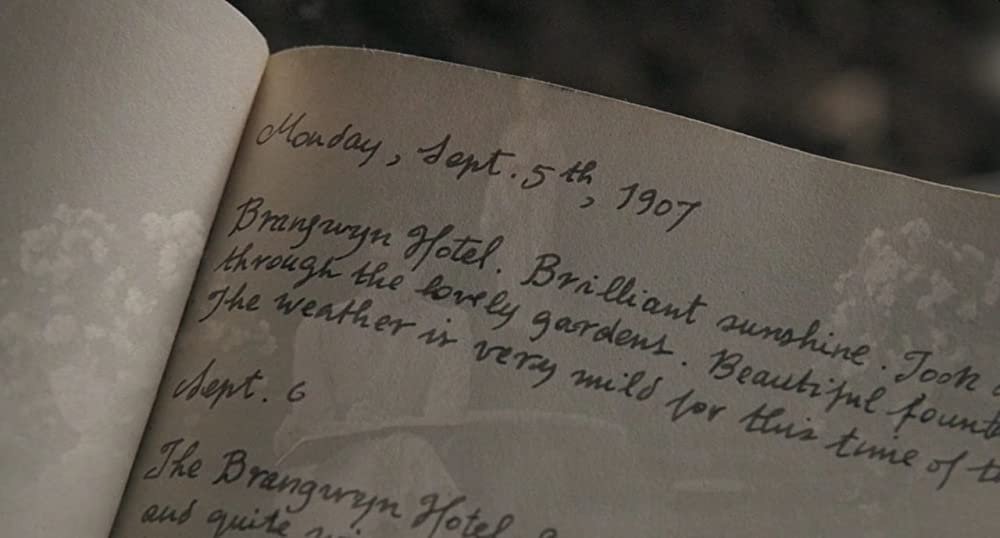 Monday, Sept. 5th, 1907
Brangwyn Hotel. Brilliant sunshine. Took
through the lovely gardens. Beautiful
The weather is very mild for this time of
Sept. 6
The Brangwyn Hotel
and quite